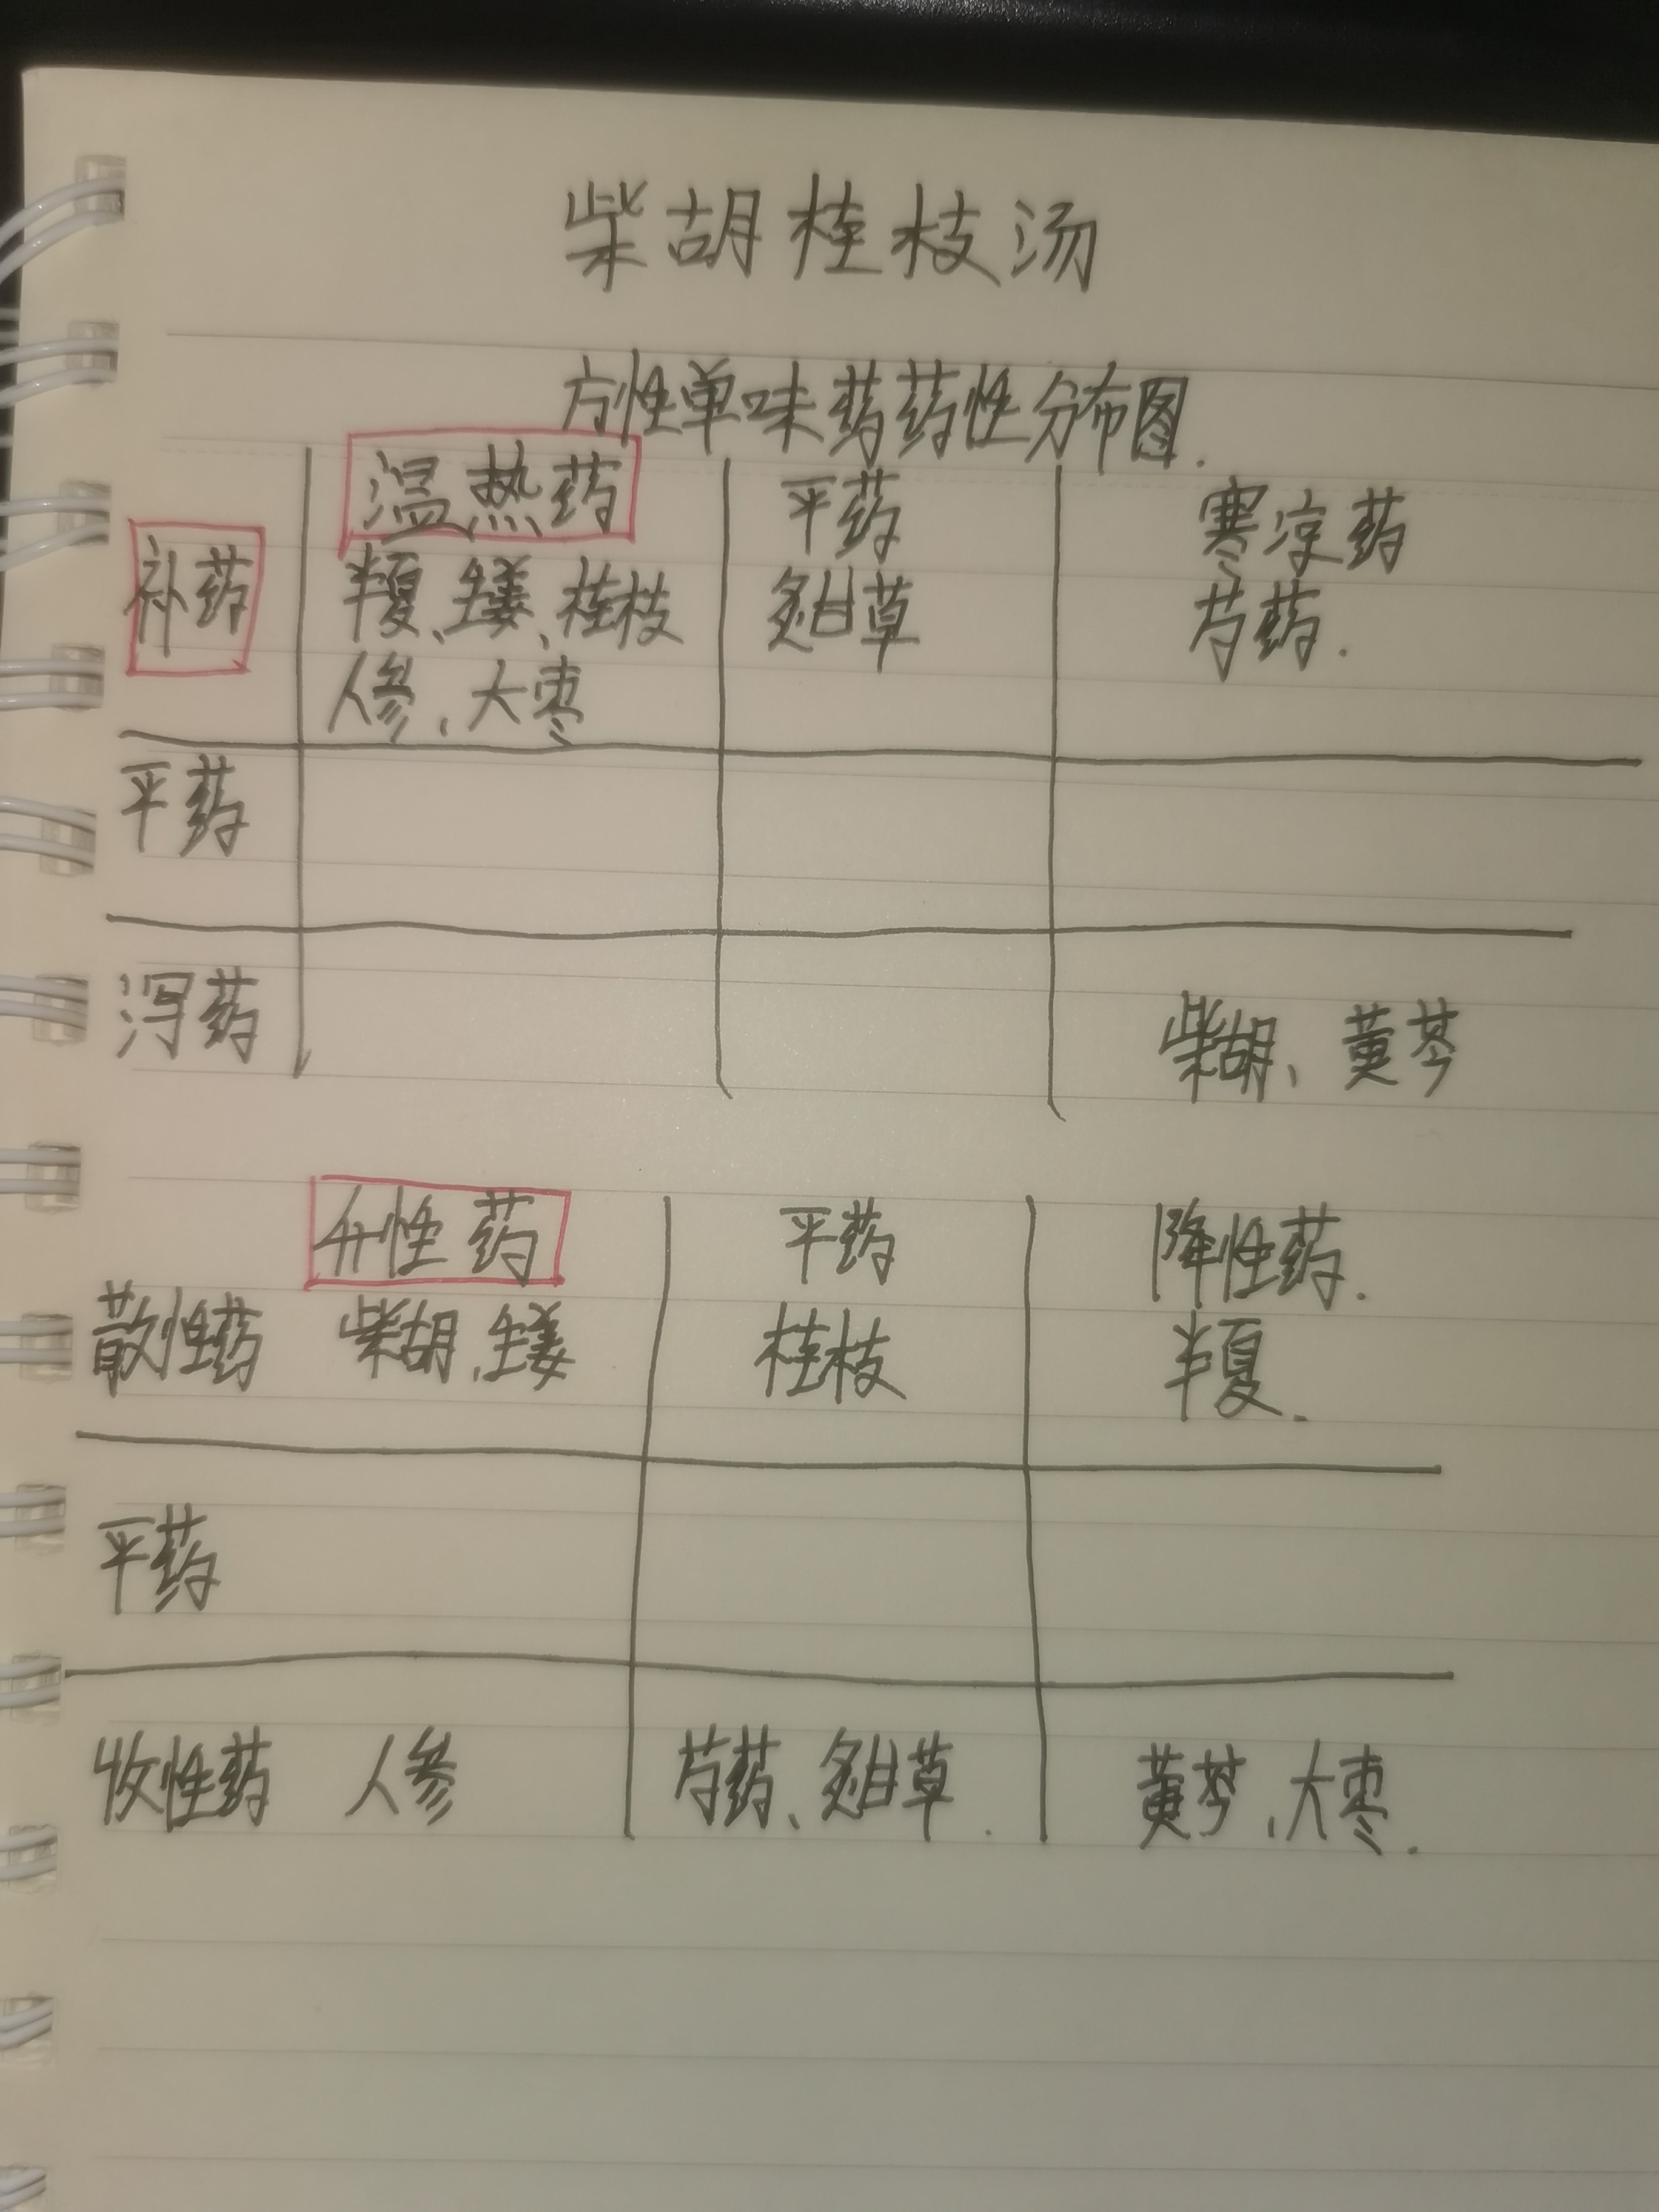 柴胡桂枝汤
方性单味药药性分布图.
温热药 平药 寒凉药
补药 半夏、生姜、桂枝 炙甘草 芍药.
人参、大枣
平药
泻药 柴胡、黄芩
升性药 平药 降性药.
散性药 柴胡、生姜 桂枝 半夏.
平药
收性药 人参 芍药、炙甘草. 黄芩、大枣.